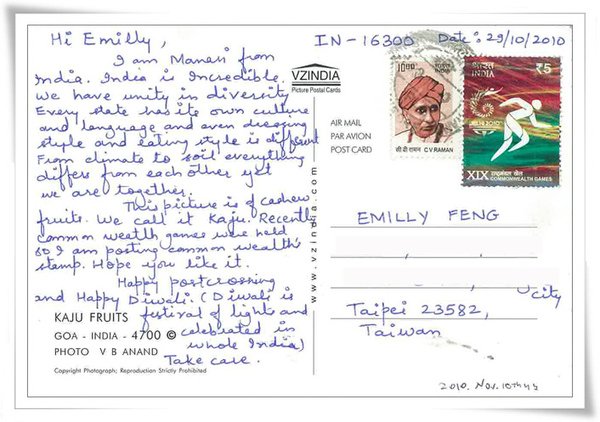 Hi Emilly,
I am Manasi from
India. India is Incredible.
We have unity in diversity
Every state has its own culture
and language and even dressing
style and eating style is different
From climate to soil everything
differs from each other yet
we are together.
This picture is of cashew
fruits. We call it Kaju. Recently
common wealth games were held
so I am posting common wealth's
stamp. Hope you like it.
Happy postcrossing
and Happy Diwali. (Diwali is
festival of lights and
celebrated in
whole India)
Take care.
KAJU FRUITS
GOA - INDIA - 4700 ©
PHOTO V B ANAND
Copyright Photograph; Reproduction Strictly Prohibited
VZINDIA
Picture Post Cards
AIR MAIL
PAR AVION
POST CARD
www.vzindia.com
IN-16300 Date: 29/10/2010
10.00
भारत INDIA
सी वी रामन C V RAMAN
भारत INDIA
₹5
DELHI 2010
XIX राष्ट्रमंडल खेल
COMMONWEALTH GAMES
EMILLY FENG
city
Taipei 23582,
Taiwan
2010. Nov. 10